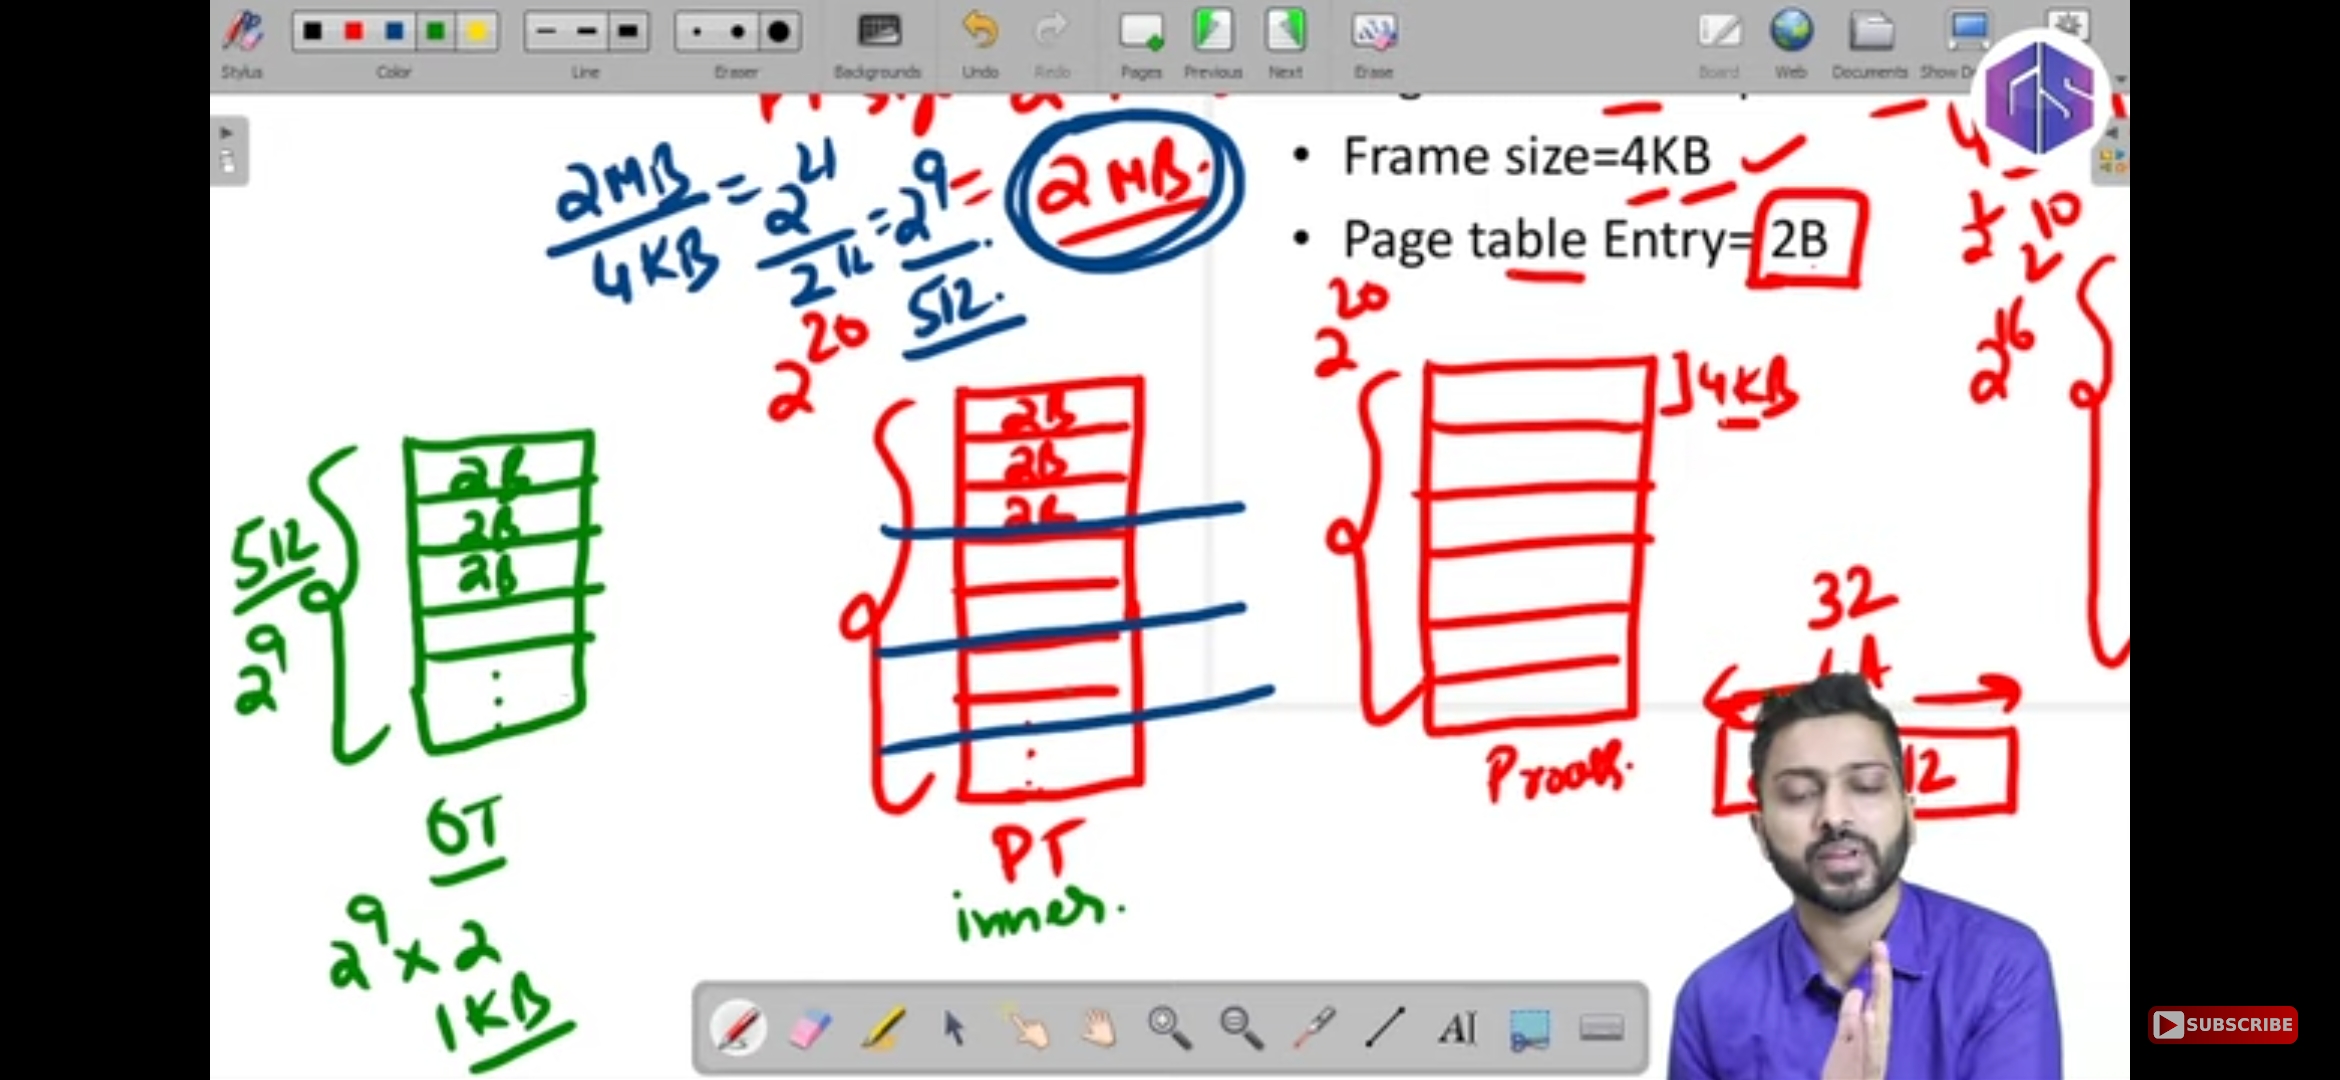 Stylus Color Line Eraser Backgrounds Undo Redo Pages Previous Next Erase Board Web Documents Show D
2MB/4KB = 2^21/2^12 = 2^9 = 2 MB.
512.
• Frame size=4KB
• Page table Entry= 2B
2^10
2
2^16
2^20
2^20
]4KB
2B
2B
2B
2B
2B
2B
512
2^9
32
12
Process.
OT
PT
inner.
2^9 x 2
1KB
GS
AI
SUBSCRIBE